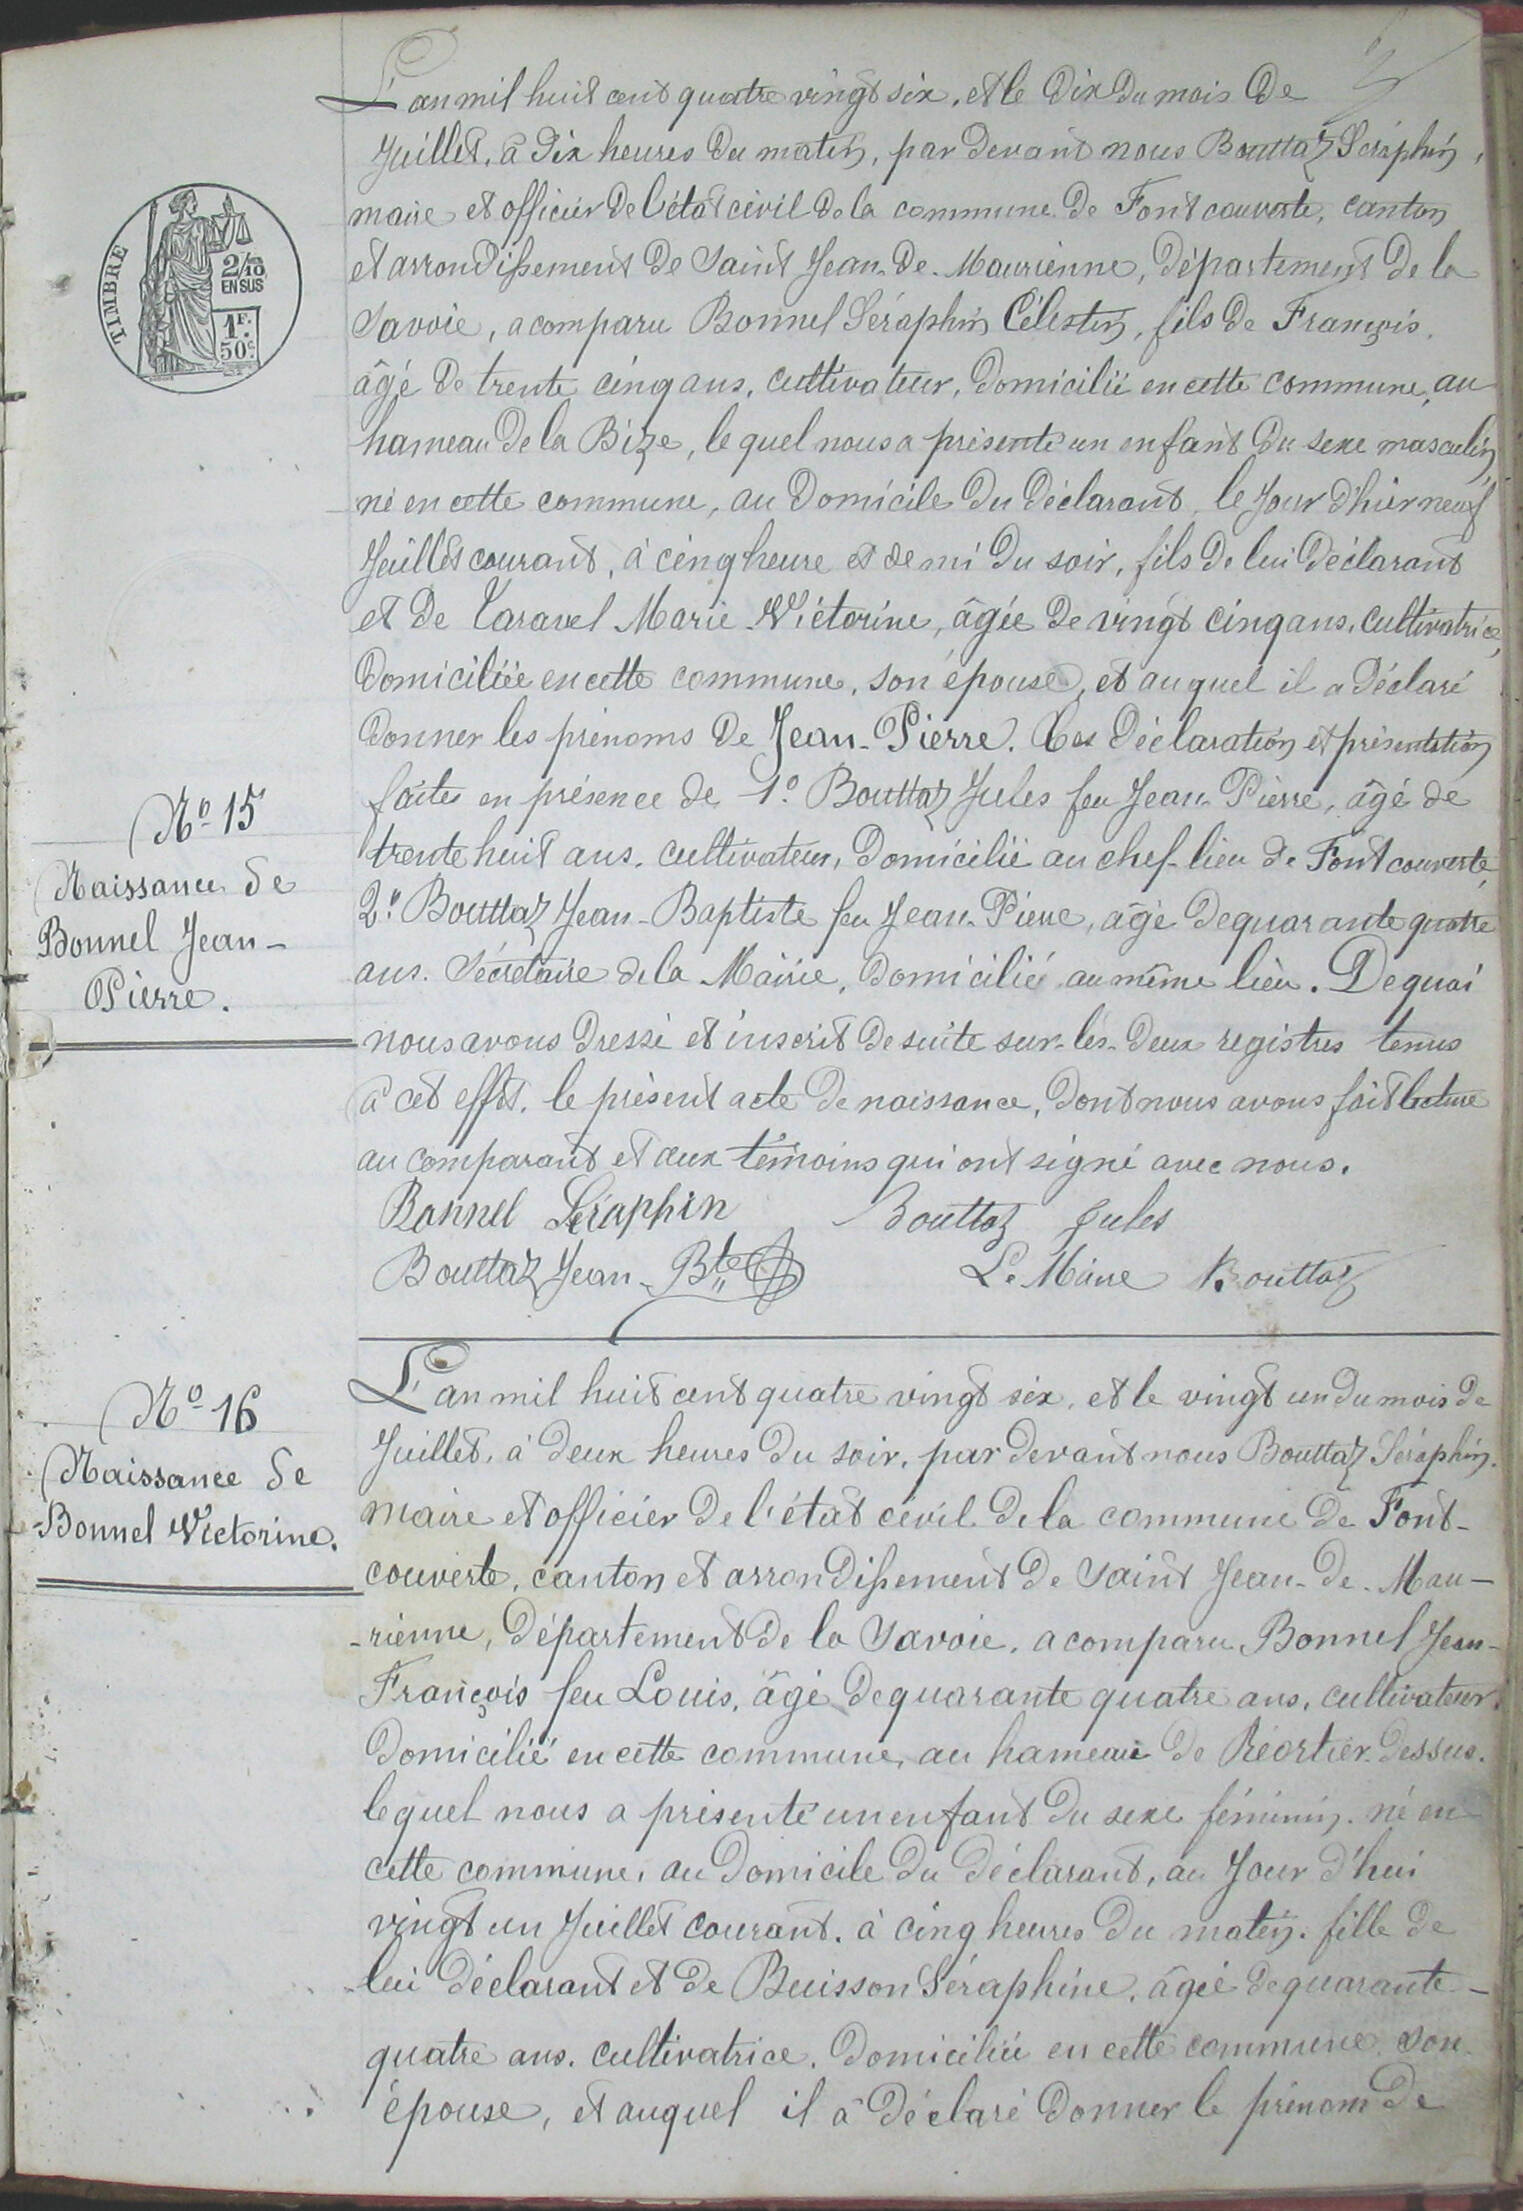 L'an mil huit cent quatre vingt six, et le dix du mois de
Juillet, à dix heures du matin, par devant nous Bouttaz Séraphin,
maire et officier de l'état civil de la commune de Fontcouverte, canton
et arrondissement de Saint Jean-de-Maurienne, département de la
Savoie, a comparu Bonnel Séraphin Célestin, fils de François,
âgé de trente cinq ans, cultivateur, domicilié en cette commune, au
hameau de la Bize, lequel nous a présenté un enfant du sexe masculin,
né en cette commune, au domicile du déclarant, le jour d'hier neuf
Juillet courant, à cinq heure et demi du soir, fils de lui déclarant
et de Taravel Marie Victorine, âgée de vingt cinq ans, cultivatrice,
domiciliée en cette commune, son épouse, et auquel il a déclaré
donner les prénoms de Jean-Pierre. Ces déclaration et présentation
faites en présence de 1º Bouttaz Jules feu Jean Pierre, âgé de
trente huit ans, cultivateur, domicilié au chef-lieu de Fontcouverte,
2º Bouttaz Jean-Baptiste feu Jean-Pierre, âgé de quarante quatre
ans. Sécrétaire de la Mairie, domicilié au même lieu. De quoi
nous avons dressé et inscrit de suite sur-les-deux registres tenus
à cet effet, le présent acte de naissance, dont nous avons fait lecture
au comparant et aux témoins qui ont signé avec nous.
Bonnel Séraphin Bouttaz Jules
Bouttaz Jean-Bte Le Maire Bouttaz
Nº 15
Naissance de
Bonnel Jean-
Pierre.
TIMBRE
2/10
EN SUS
1F.
50c.
L'an mil huit cent quatre vingt six, et le vingt un du mois de
Juillet, à deux heures du soir, par devant nous Bouttaz Séraphin,
maire et officier de l'état civil de la commune de Font-
couverte, canton et arrondissement de Saint Jean-de-Mau-
-rienne, département de la Savoie, a comparu Bonnel Jean-
François feu Louis, âgé de quarante quatre ans, cultivateur,
domicilié en cette commune, au hameau de Réortier-dessus,
lequel nous a présenté un enfant du sexe féminin, né en
cette commune, au domicile du déclarant, au Jour d'hui
vingt un Juillet courant, à cinq heures du matin, fille de
lui déclarant et de Buisson Séraphine, âgée de quarante-
quatre ans, cultivatrice, domiciliée en cette commune, son
épouse, et auquel il a déclaré donner le prénom de
Nº 16
Naissance de
Bonnel Victorine.